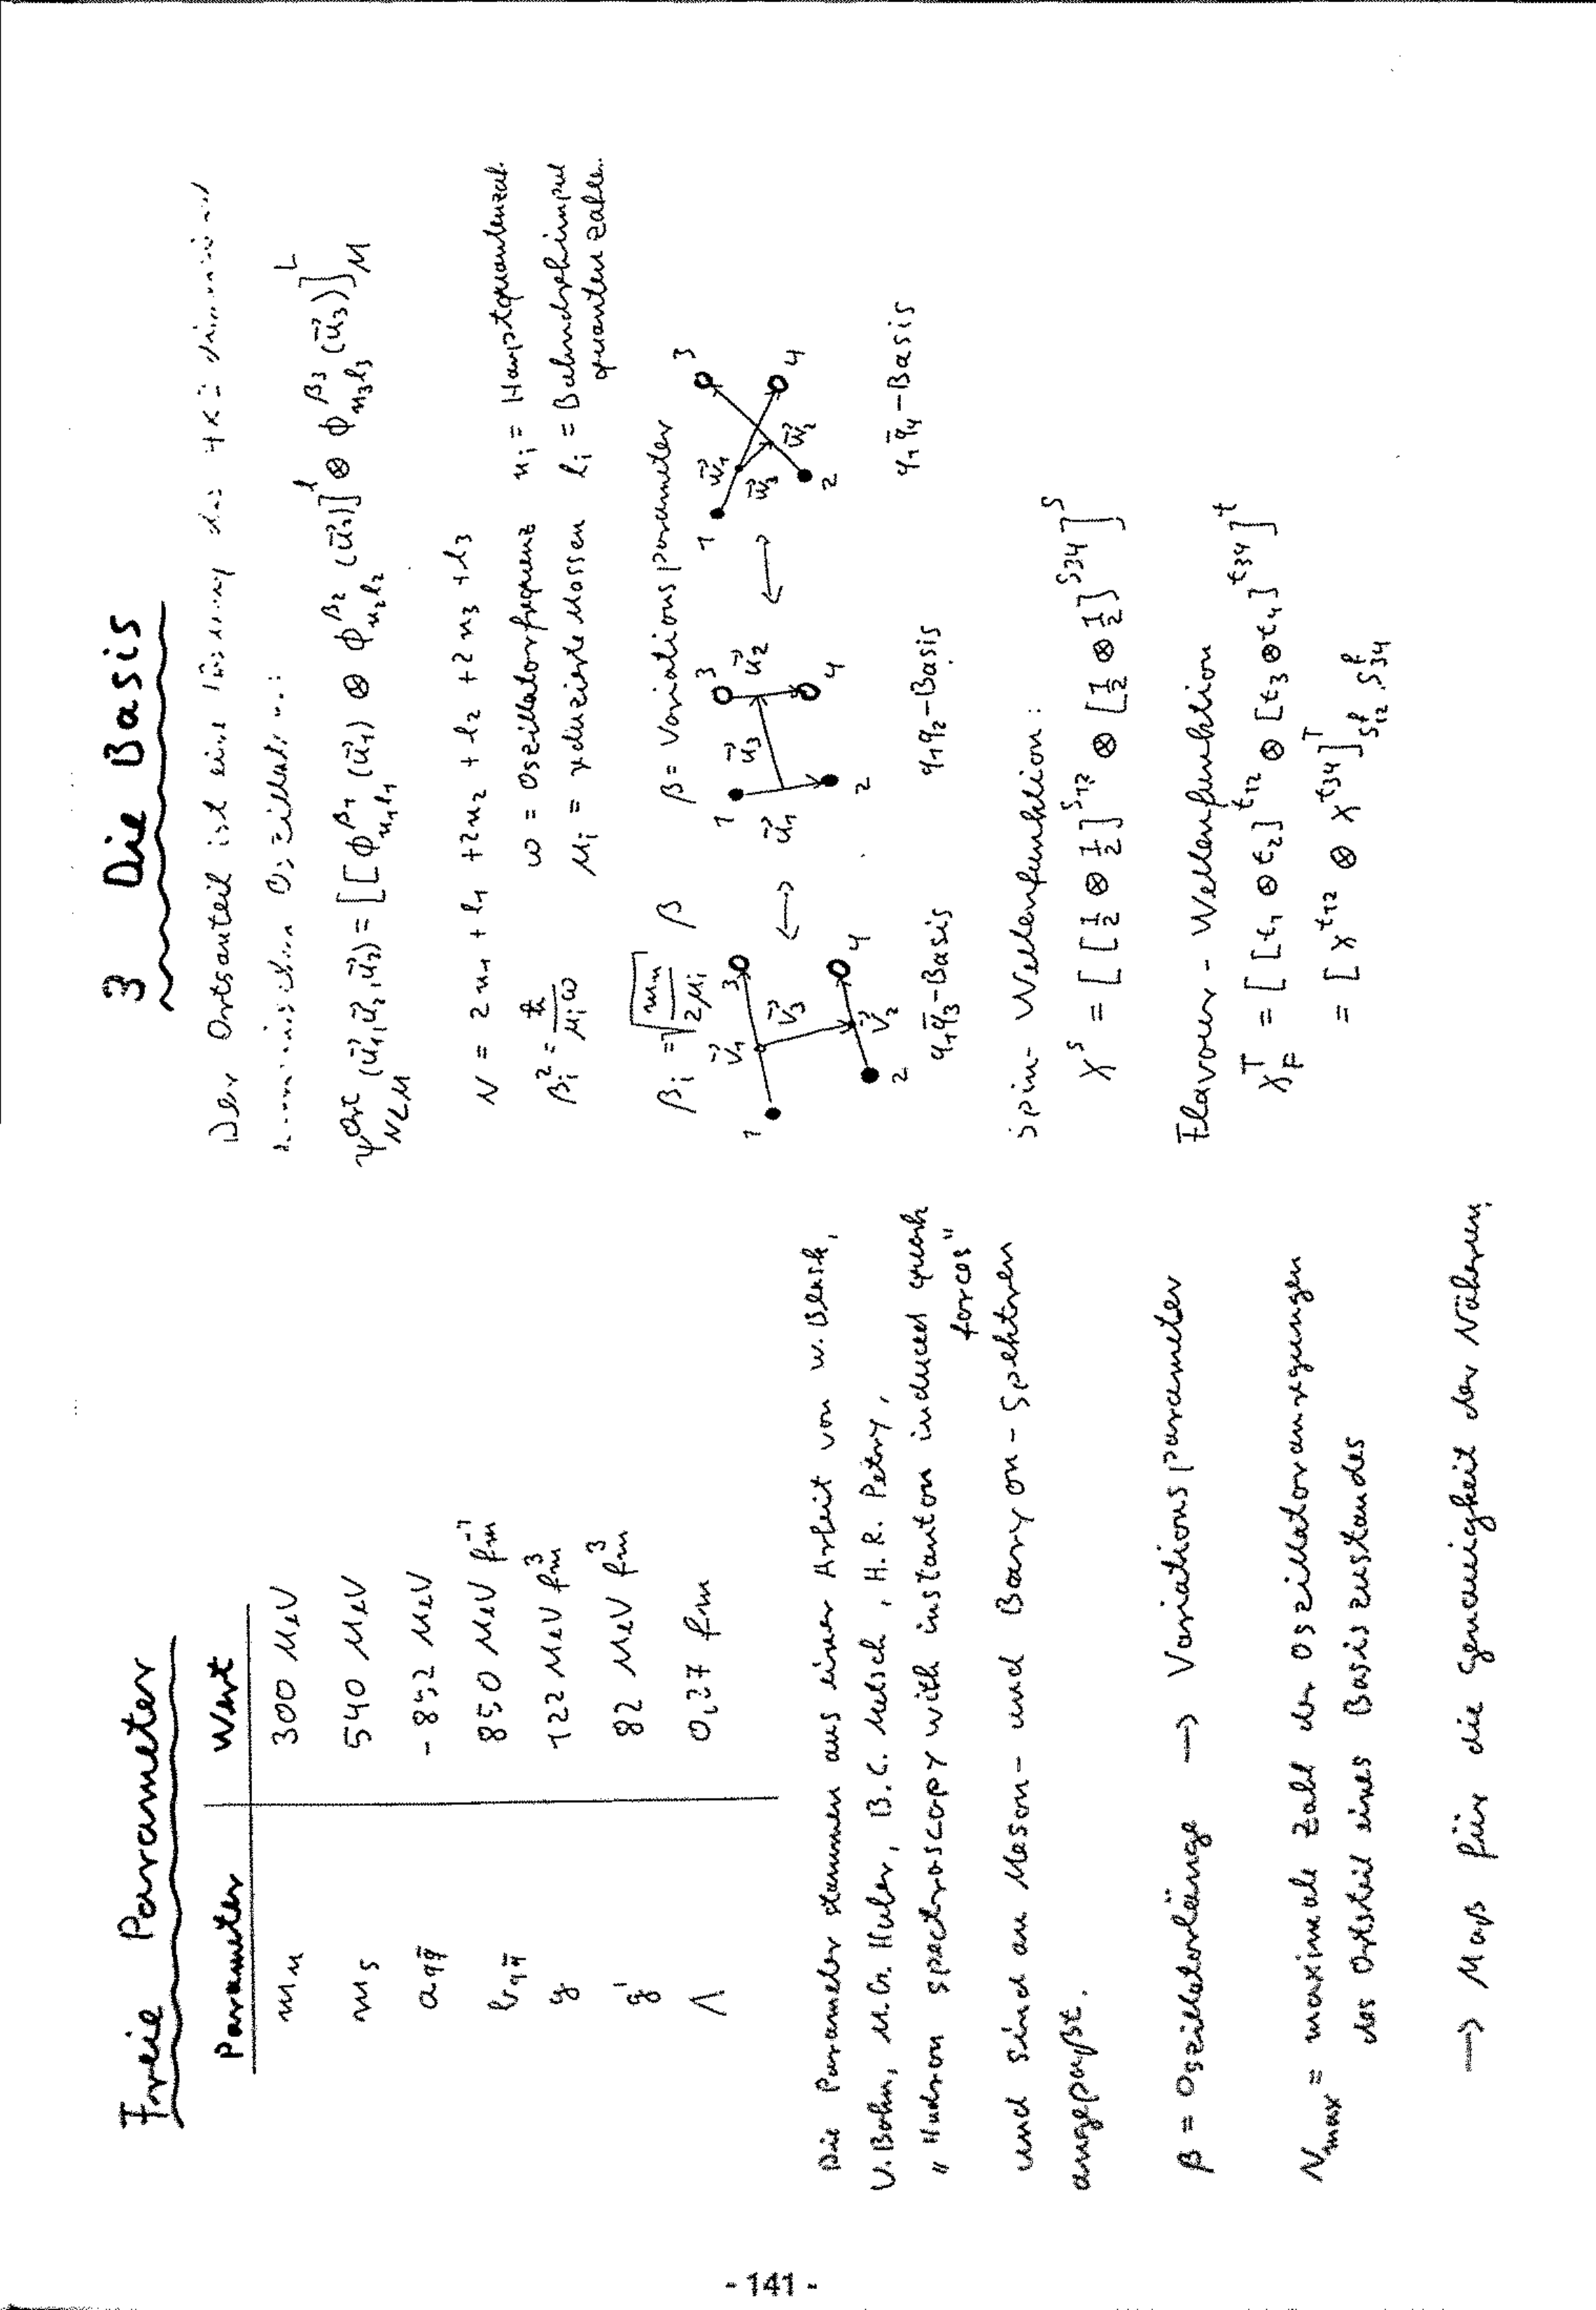 Freie Parameter
Parameter Wert
m_n 300 MeV
m_s 540 MeV
a_{qq̄} -892 MeV
b_{qq̄} 890 MeV fm^{-1}
g 122 MeV fm^3
g' 82 MeV fm^3
Λ 0,27 fm
Die Parameter stammen aus einer Arbeit von W. Blask,
U. Bohn, M.G. Huber, B.C. Metsch, H.R. Petry,
"Hadron spectroscopy with instanton induced quark
forces"
und sind an Meson- und Baryon-Spektren
angepaßt.
β = Oszillatorlänge → Variationsparameter
N_max = maximale Zahl der Oszillatoranregungen
des Ortsteil eines Basiszustandes
→ Maß für die Genauigkeit der Näherung
3 Die Basis
Der Ortsanteil ist eine Lösung des
Oszillators:
ψ^{Ort}_{NLM} (u⃗_1, u⃗_2, u⃗_3) = [[φ^{β_1}_{n_1l_1} (u⃗_1) ⊗ φ^{β_2}_{n_2l_2} (u⃗_2)]^l ⊗ φ^{β_3}_{n_3l_3} (u⃗_3)]^L_M
N = 2n_1 + l_1 + 2n_2 + l_2 + 2n_3 + l_3
β_i^2 = ħ/(μ_i ω) ω = Oszillatorfrequenz n_i = Hauptquantenzahl
μ_i = reduzierte Massen l_i = Bahndrehimpuls
quantenzahlen
β_i = √(m_n/2μ_i) β β = Variationsparameter
1 v⃗_1 3 v⃗_3 4 v⃗_2 2 ↔ 1 u⃗_1 u⃗_3 3 u⃗_2 2 4 ↔ 1 w⃗_1 3 w⃗_3 w⃗_2 2 4
q_1q̄_3-Basis q_1q_2-Basis q_1q̄_4-Basis
Spin-Wellenfunktion:
χ^S = [[½ ⊗ ½]^{S_12} ⊗ [½ ⊗ ½]^{S_34}]^S
Flavour-Wellenfunktion
χ^T_F = [[t_1 ⊗ t_2]^{t_12} ⊗ [t_3 ⊗ t_4]^{t_34}]^t
= [χ^{t_12} ⊗ χ^{t_34}]^T_{S^f_12, S^f_34}
- 141 -